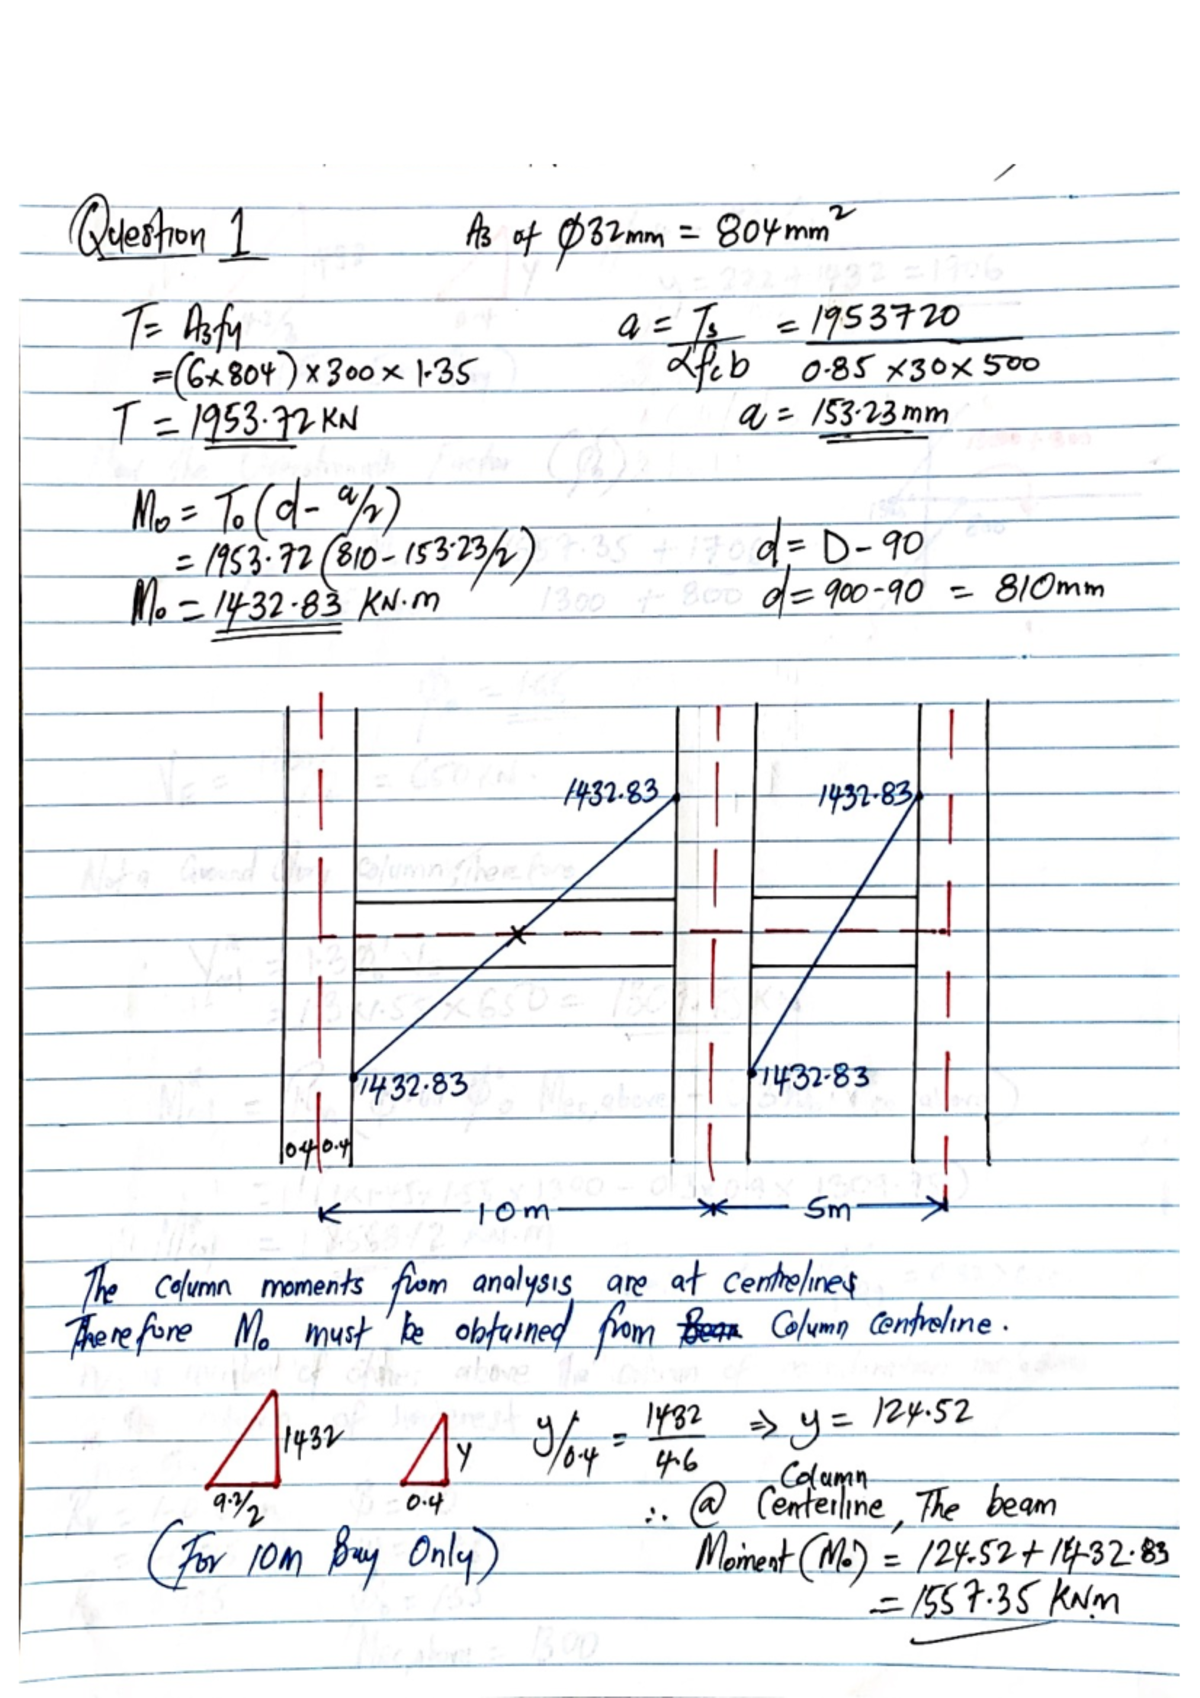 Question 1 As of Ø32mm = 804mm²
T = Asfy
= (6x804) x 300 x 1.35
T = 1953.72 KN
a = Ts / αfcb = 1953720 / 0.85 x 30 x 500
a = 153.23 mm
Mo = To (d - a/2)
= 1953.72 (810 - 153.23/2)
Mo = 1432.83 KN.m
d = D - 90
d = 900 - 90 = 810mm
1432.83 1432.83
1432.83 1432.83
0.4 0.4
10m 5m
The column moments from analysis are at centrelines
Therefore Mo must be obtained from Column Centreline.
1432 y y/0.4 = 1432/4.6 => y = 124.52
9.2/2 0.4
(For 10m Bay Only)
∴ @ Column Centerline, The beam
Moment (Mo) = 124.52 + 1432.83
= 1557.35 KN.m